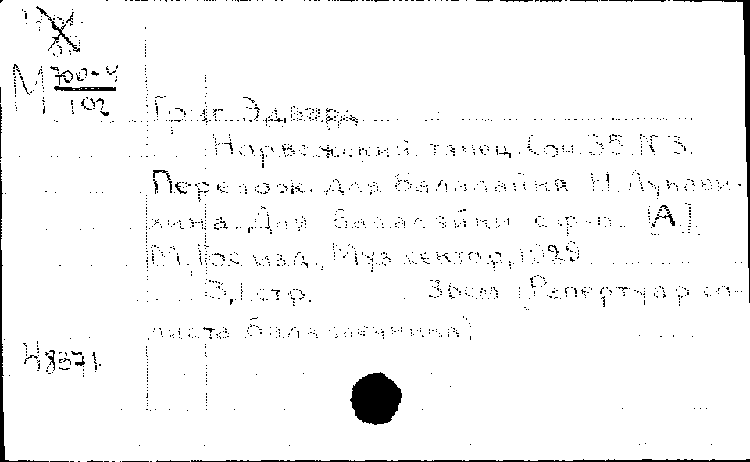 М 700-4
102
Григ Эдвард
Норвежский танец. Соч. 35. N 3.
Перелож. для балалайки Н. Лукави-
хина. Для балалайки с ф-п. [А.]
М., Гос изд., Муз сектор, 1929
3, 1 стр. 36см (Репертуар со-
листа балалаечника)
48371